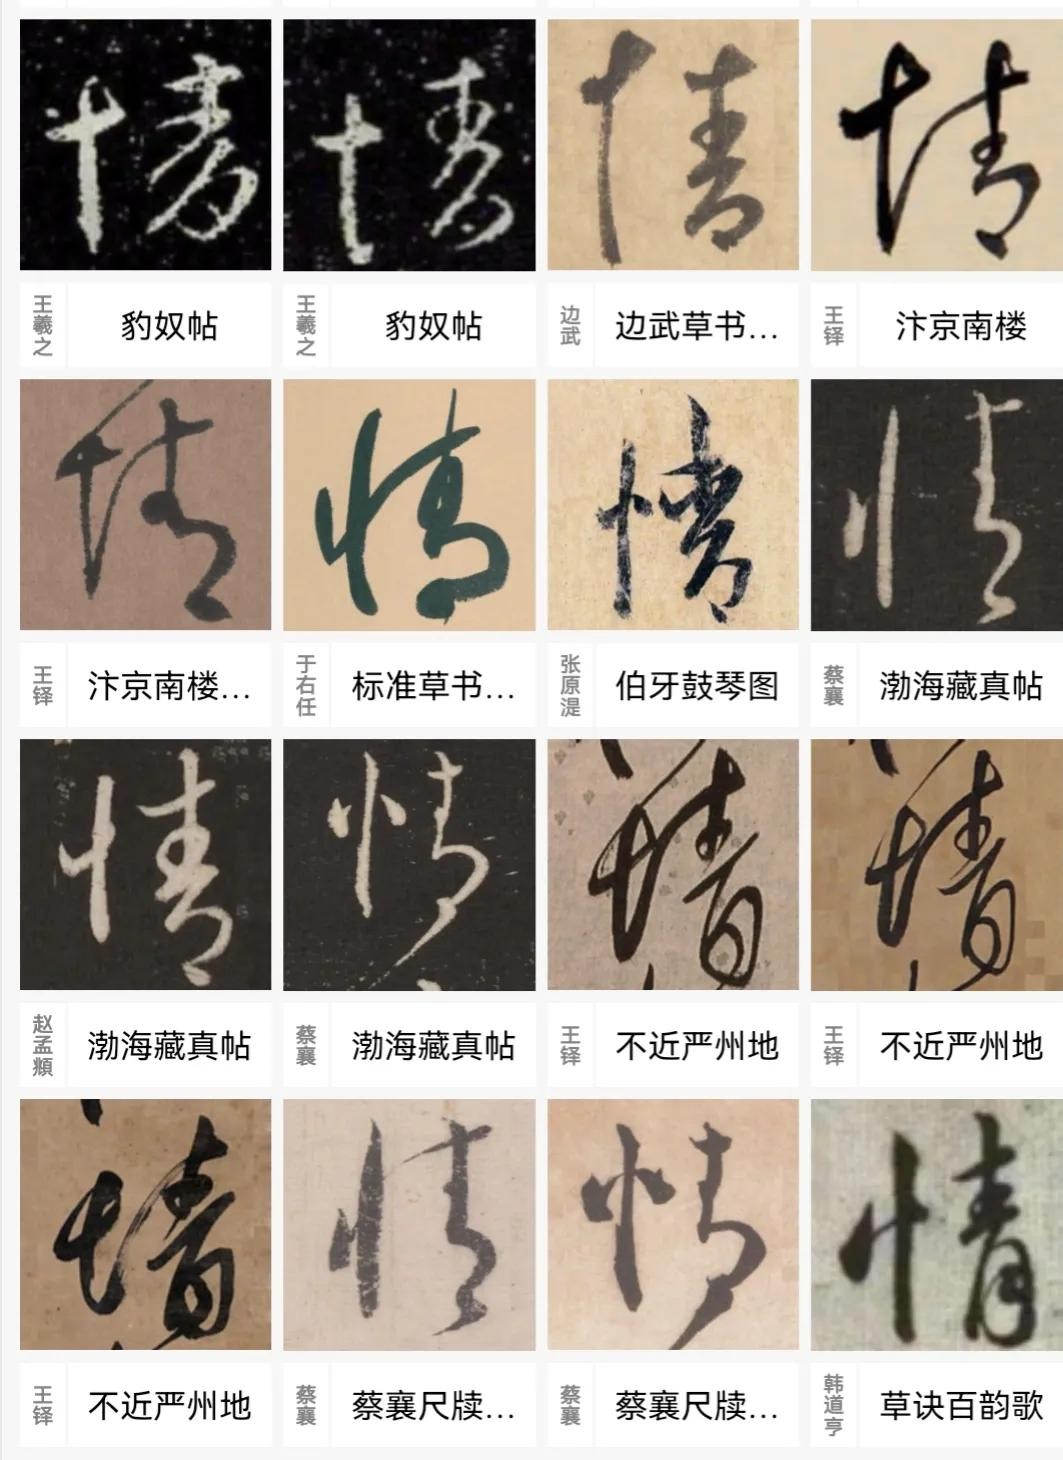 情 情 情 情
王羲之 豹奴帖 王羲之 豹奴帖 边武 边武草书… 王铎 汴京南楼
情 情 情 情
王铎 汴京南楼… 于右任 标准草书… 张原湜 伯牙鼓琴图 蔡襄 渤海藏真帖
情 情 情 情
赵孟頫 渤海藏真帖 蔡襄 渤海藏真帖 王铎 不近严州地 王铎 不近严州地
情 情 情 情
王铎 不近严州地 蔡襄 蔡襄尺牍… 蔡襄 蔡襄尺牍… 韩道亨 草诀百韵歌